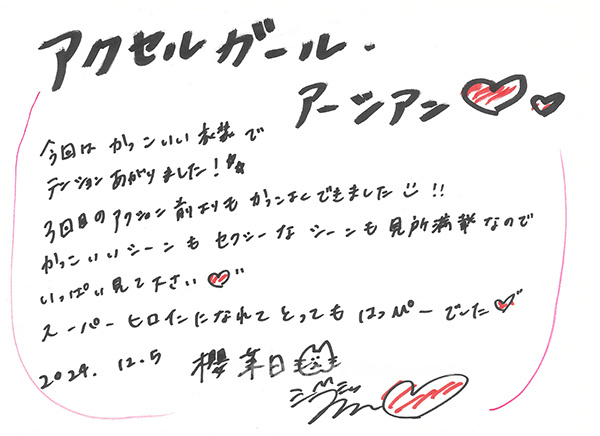 アクセルガール・
アーシアン
今回は かっこいい衣装で
テンションあがりました!
3回目のアクション 前よりも かっこよくできました!!
かっこいいシーンも セクシーな シーンも 見所満載なので
いっぱい見て下さい
スーパーヒロインになれて とっても はっpyーでした
2024. 12.5 櫻茉日